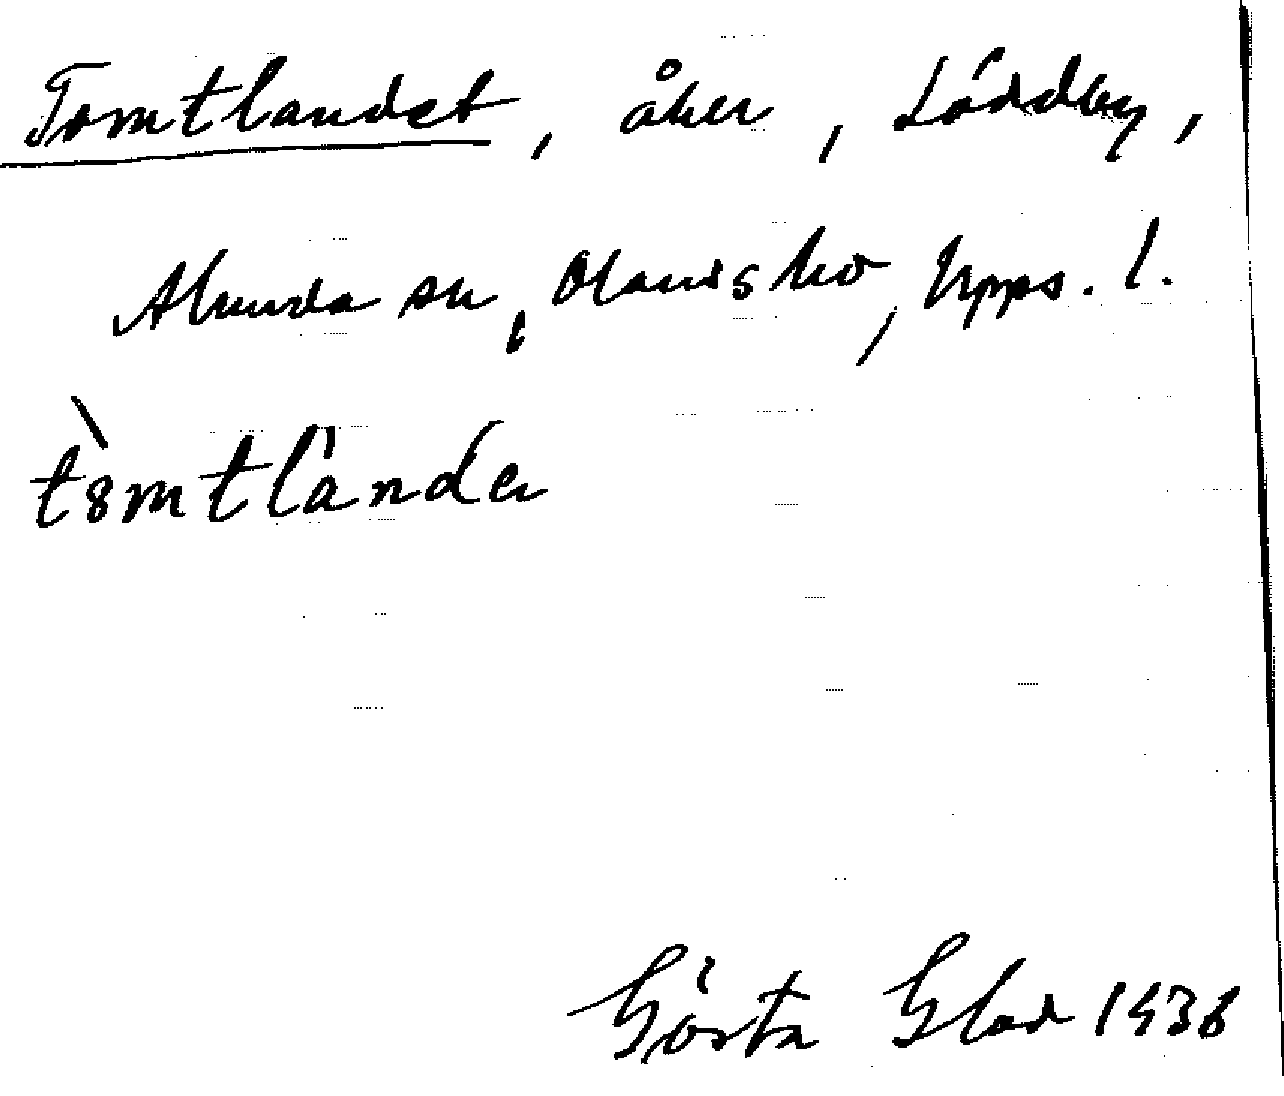 Tomtlandet, åker, Löddby,
Alunda sn, Olands hd, Upps. l.
tòmtlànden
Gösta Glad 1936